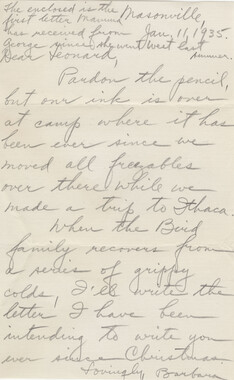 The enclosed is the
first letter Mamma Masonville,
has received from Jan. 11, 1935.
George since she went West last
summer.
Dear Leonard,
Pardon the pencil,
but our ink is over
at camp where it has
been ever since we
moved all freezables
over there while we
made a trip to Ithaca.
When the Bird
family recovers from
a series of grippy
colds, I'll write the
letter I have been
intending to write you
ever since Christmas.
Lovingly, Barbara